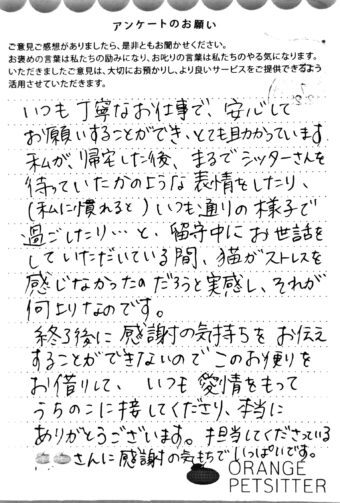 アンケートのお願い
ご意見ご感想がありましたら、是非ともお聞かせください。
お褒めの言葉は私たちの励みになり、お叱りの言葉は私たちのやる気になります。
いただきましたご意見は、大切にお預かりし、より良いサービスをご提供できるよう
活用させていただきます。
いつも丁寧なお仕事で、安心して
お願いすることができ、とても助かっています。
私が、帰宅した後、まるでシッターさんを
待っていたかのような表情をしたり、
(私に慣れると)いつも通りの様子で
過ごしたり…と、留守中にお世話を
していただいている間、猫がストレスを
感じなかったのだろうと実感し、それが
何よりなのです。
終了後に感謝の気持ちをお伝え
することができないのでこのお便りを
お借りして、いつも愛情をもって
うちのこに接してくださり、本当に
ありがとうございます。担当してくださっている
さんに感謝の気もちでいっぱいです。
ORANGE
PETSITTER